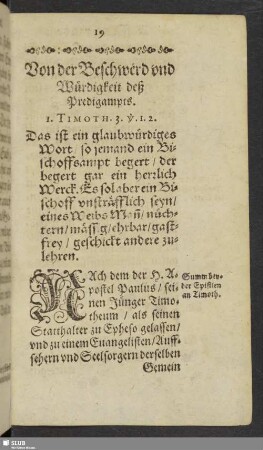 19
Von der Beschwerd vnd
Würdigkeit deß
Predigampts.
1. TIMOTH. 3. ℣. 1. 2.
Das ist ein glaubwürdiges
Wort / so jemand ein Bi-
schoffsampt begert / der
begert gar ein herzlich
Werck. Es sol aber ein Bi-
schoff vnsträfflich seyn /
eines Weibs Mañ / nüch-
tern / mässig / ehrbar / gast-
frey / geschickt andere zu-
lehren.
NAch dem der H. A-
postel Paulus / sei-
nen Jünger Timo-
theum / als seinen
Statthalter zu Epheso gelassen /
vnd zu einem Euangelisten / Auff-
sehern vnd Seelsorgern derselben
Gemein
Summ bey-
der Epistlen
an Timoth.
SLUB